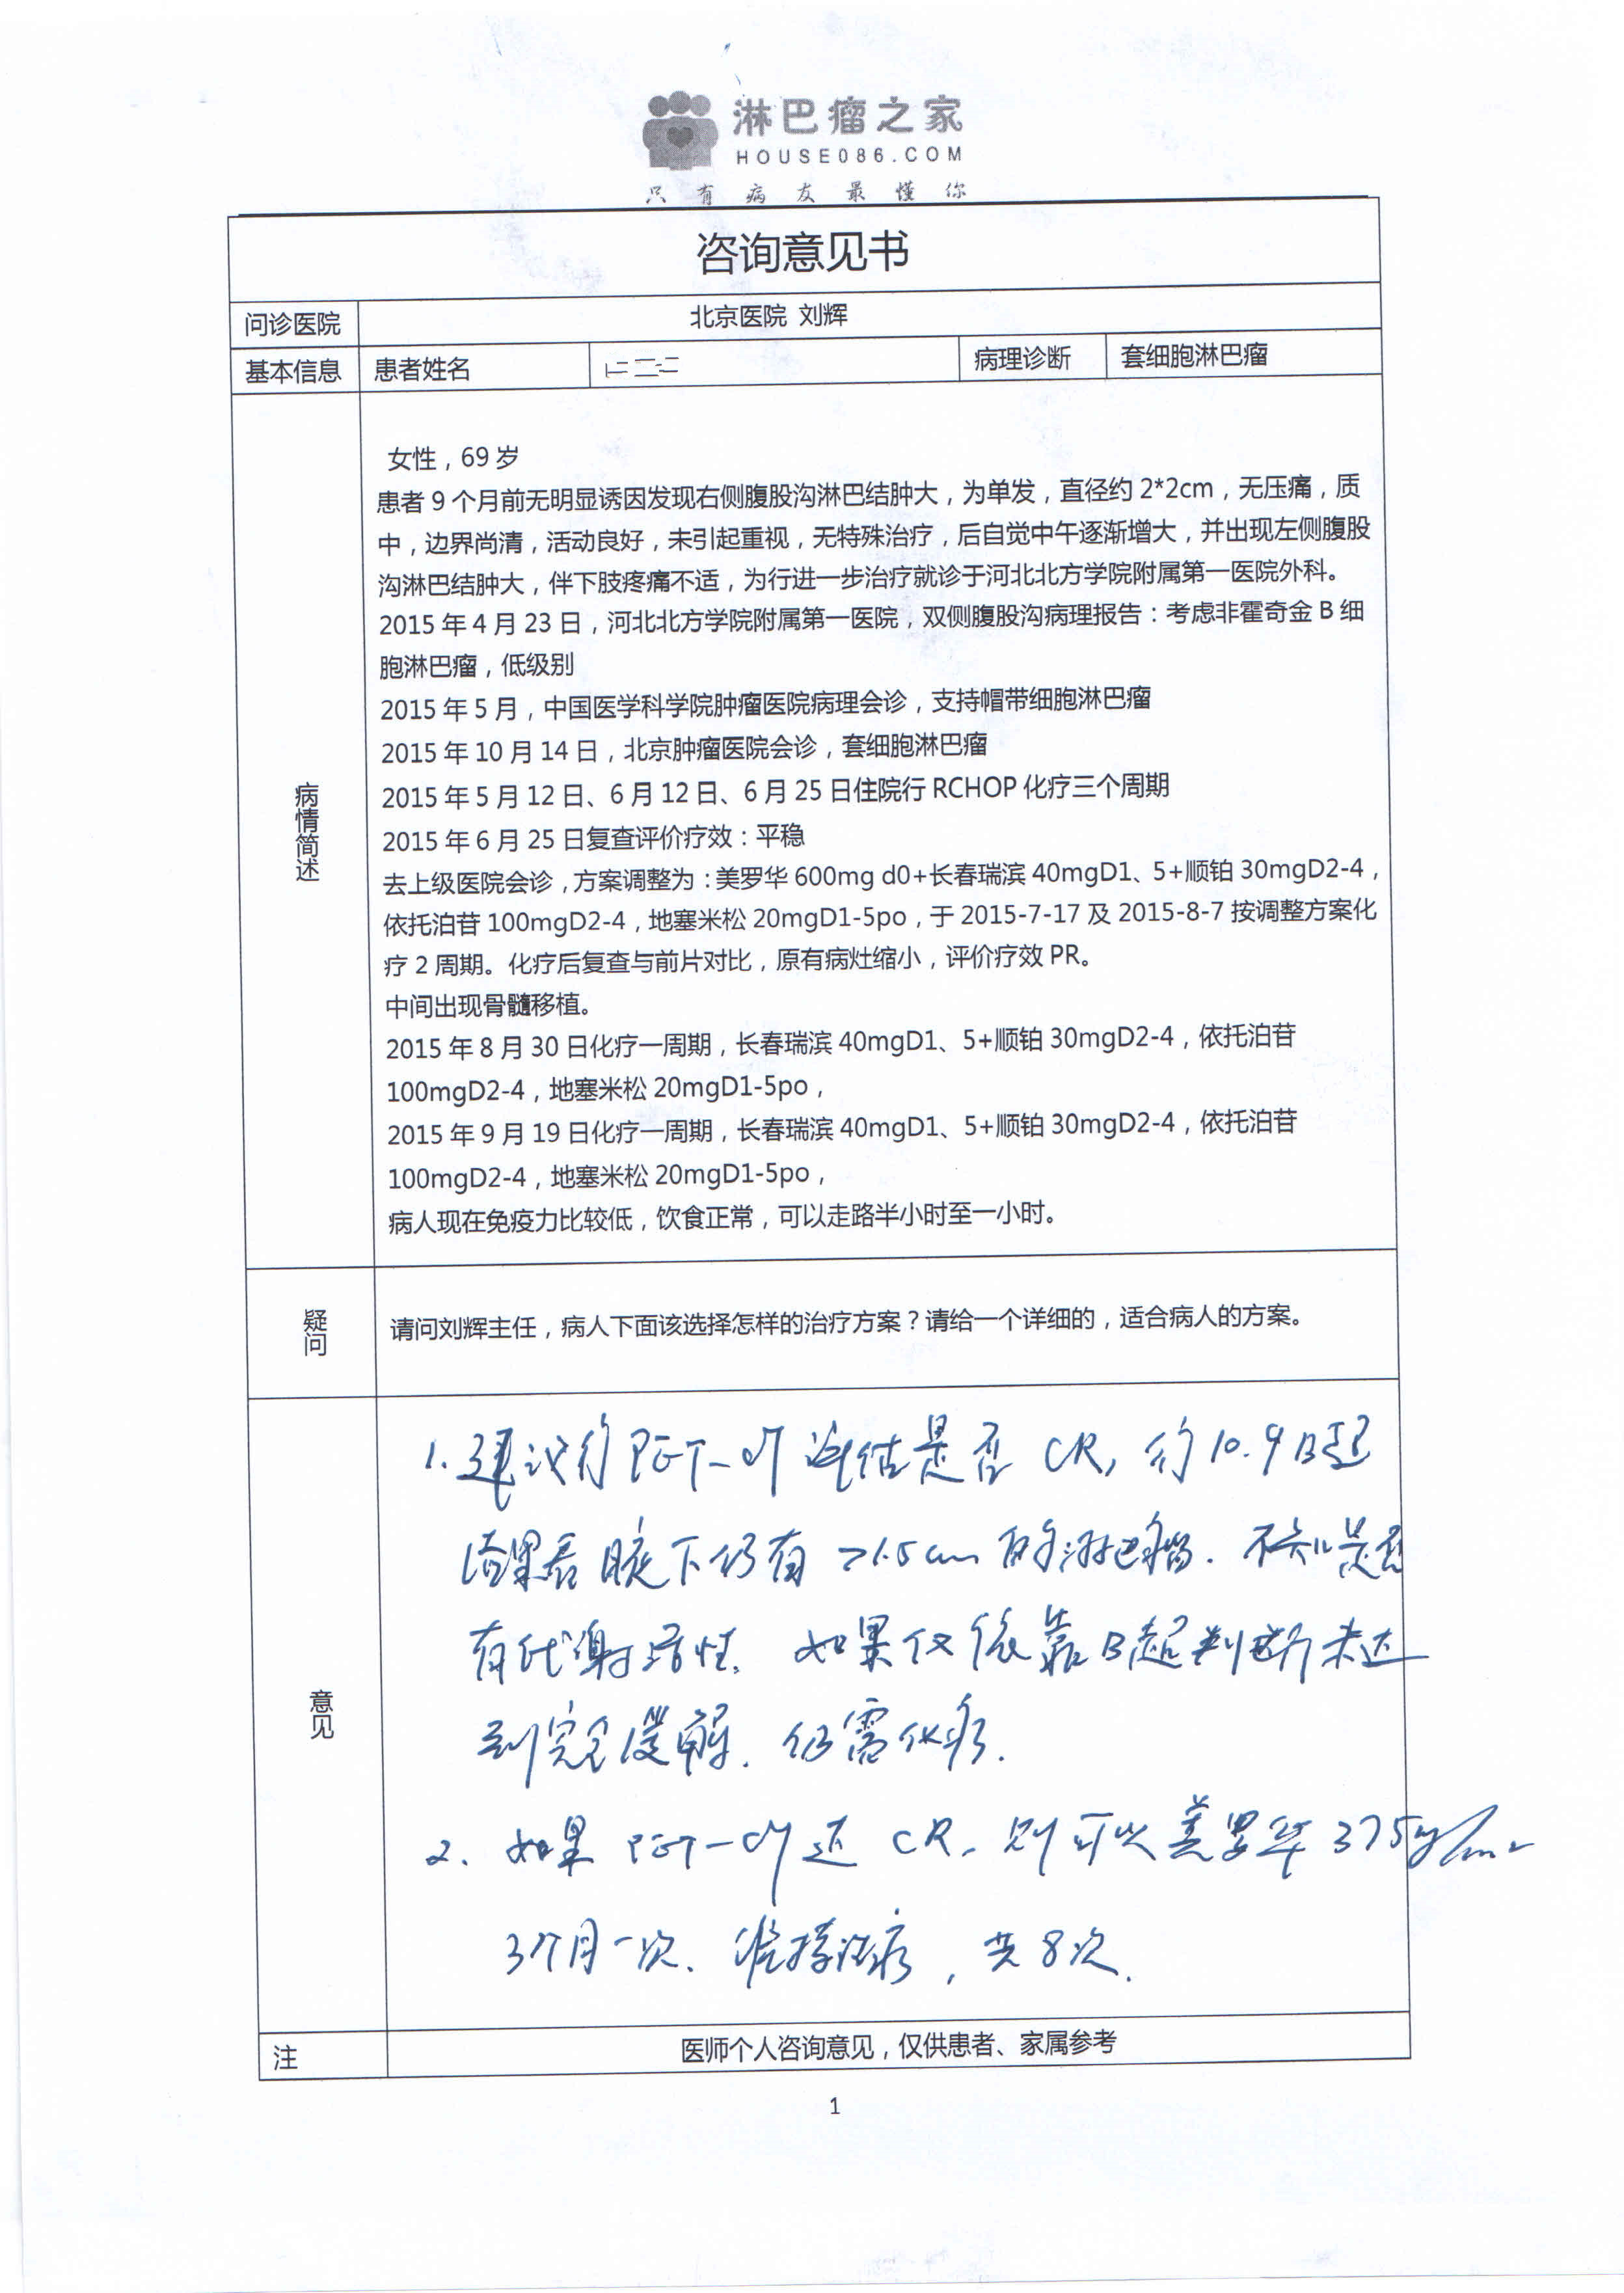 淋巴瘤之家
HOUSE086.COM
只有病友最懂你
咨询意见书
问诊医院 北京医院 刘辉
基本信息 患者姓名 病理诊断 套细胞淋巴瘤
病情简述
女性，69 岁
患者 9 个月前无明显诱因发现右侧腹股沟淋巴结肿大，为单发，直径约 2*2cm，无压痛，质
中，边界尚清，活动良好，未引起重视，无特殊治疗，后自觉中午逐渐增大，并出现左侧腹股
沟淋巴结肿大，伴下肢疼痛不适，为行进一步治疗就诊于河北北方学院附属第一医院外科。
2015 年 4 月 23 日，河北北方学院附属第一医院，双侧腹股沟病理报告：考虑非霍奇金 B 细
胞淋巴瘤，低级别
2015 年 5 月，中国医学科学院肿瘤医院病理会诊，支持帽带细胞淋巴瘤
2015 年 10 月 14 日，北京肿瘤医院会诊，套细胞淋巴瘤
2015 年 5 月 12 日、6 月 12 日、6 月 25 日住院行 RCHOP 化疗三个周期
2015 年 6 月 25 日复查评价疗效：平稳
去上级医院会诊，方案调整为：美罗华 600mg d0+长春瑞滨 40mgD1、5+顺铂 30mgD2-4，
依托泊苷 100mgD2-4，地塞米松 20mgD1-5po，于 2015-7-17 及 2015-8-7 按调整方案化
疗 2 周期。化疗后复查与前片对比，原有病灶缩小，评价疗效 PR。
中间出现骨髓移植。
2015 年 8 月 30 日化疗一周期，长春瑞滨 40mgD1、5+顺铂 30mgD2-4，依托泊苷
100mgD2-4，地塞米松 20mgD1-5po，
2015 年 9 月 19 日化疗一周期，长春瑞滨 40mgD1、5+顺铂 30mgD2-4，依托泊苷
100mgD2-4，地塞米松 20mgD1-5po，
病人现在免疫力比较低，饮食正常，可以走路半小时至一小时。
疑问
请问刘辉主任，病人下面该选择怎样的治疗方案？请给一个详细的，适合病人的方案。
意见
1. 建议行 PET-CT 评估是否 CR, 从 10.9 B超
结果看 腋下仍有 >1.5cm 的淋巴瘤. 不知是否
有代谢活性. 如果仅依靠B超判断未达
到完全缓解. 仍需化疗.
2. 如果 PET-CT 达 CR. 则可以美罗华 375mg/m2
3个月一次. 维持治疗, 共8次.
注 医师个人咨询意见，仅供患者、家属参考
1